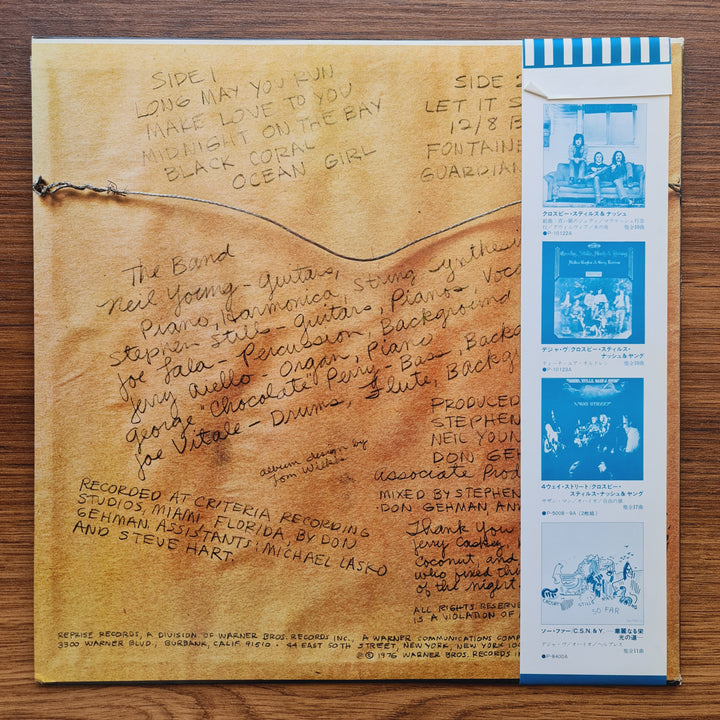 SIDE 1
LONG MAY YOU RUN
MAKE LOVE TO YOU
MIDNIGHT ON THE BAY
BLACK CORAL
OCEAN GIRL
SIDE 2
LET IT S
12/8 B
FONTAINE
GUARDIAN
The Band
Neil Young - Guitars,
Piano, Harmonica, String Synthesi
Stephen Stills - Guitars, Pianos, Voc
Joe Lala - Percussion, Background
Jerry Aiello Organ, Piano
George "Chocolate" Perry - Bass, Backg
Joe Vitale - Drums, Flute, Backg
album design by
Tom Wilkes
PRODUCED
STEPHEN
NEIL YOUN
DON GEH
associate Prod
MIXED BY STEPHEN
DON GEHMAN, AN
RECORDED AT CRITERIA RECORDING
STUDIOS, MIAMI, FLORIDA, BY DON
GEHMAN ASSISTANTS: MICHAEL LASKO
AND STEVE HART.
Thank You
Jerry
Coconut, and
who fixed thi
of the night.
ALL RIGHTS RESERVE
IS A VIOLATION OF
REPRISE RECORDS, A DIVISION OF WARNER BROS. RECORDS INC., A WARNER COMMUNICATIONS COMP
3300 WARNER BLVD., BURBANK, CALIF. 91510 · 44 EAST 50TH STREET, NEW YORK, NEW YORK 100
℗ © 1976 WARNER BROS. RECORDS IN
クロスビー・スティルス&ナッシュ
●P-10122A
デジャ・ヴ/クロスビー・スティルス・
ナッシュ&ヤング
●P-10123A
4 WAY STREET
4ウェイ・ストリート/クロスビー・
スティルス・ナッシュ&ヤング
●P-5008~9A (2枚組)
SO FAR
ソー・ファー/C.S.N.& Y. ―華麗なる栄
光の道―
デジャ・ヴ/オハイオ/ヘルプレス 他全11曲
●P-8400A